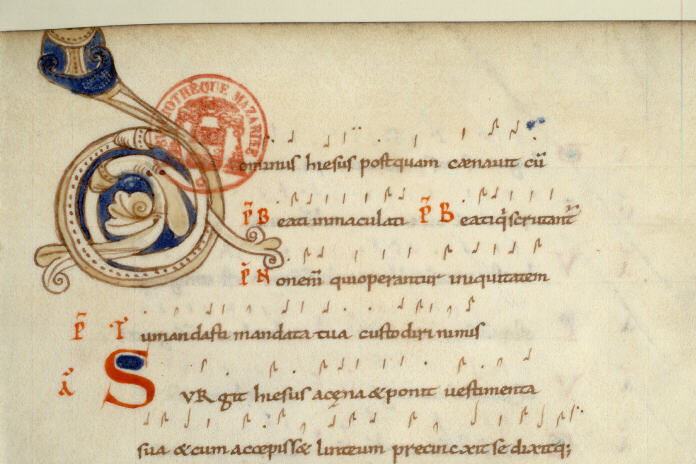 BIBLIOTHÈQUE MAZARINE
Dominus hiesus postquam cænauit cū
p̄ Beati inmaculati p̄ Beati q̄ scrutant̄
p̄ Non em̄ qui operantur iniquitatem
p̄ Tu mandasti mandata tua custodiri nimis
A SVRgit hiesus a cęna & ponit uestimenta
sua & cum accepiss& linteum precincxit se dixitq;